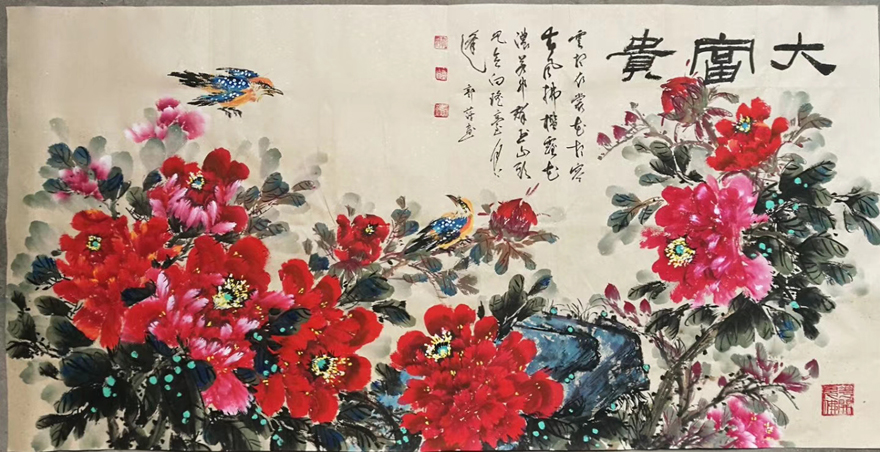 大富貴
雲想衣裳花想容
春風拂檻露花
濃若非群玉山頭
見会向瑶臺月下
逢